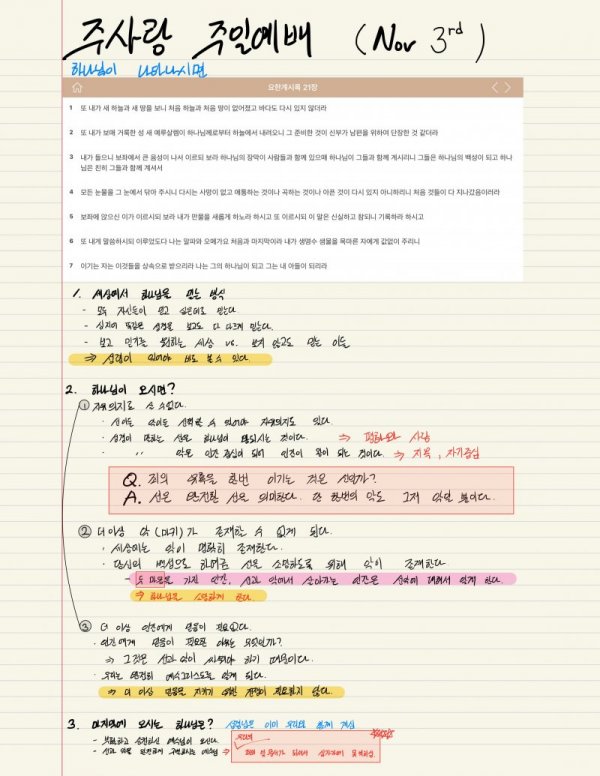 주사랑 주일예배 (Nov 3rd)
하나님이 나타나시면
요한계시록 21장
1 또 내가 새 하늘과 새 땅을 보니 처음 하늘과 처음 땅이 없어졌고 바다도 다시 있지 않더라
2 또 내가 보매 거룩한 성 새 예루살렘이 하나님께로부터 하늘에서 내려오니 그 준비한 것이 신부가 남편을 위하여 단장한 것 같더라
3 내가 들으니 보좌에서 큰 음성이 나서 이르되 보라 하나님의 장막이 사람들과 함께 있으매 하나님이 그들과 함께 계시리니 그들은 하나님의 백성이 되고 하나
님은 친히 그들과 함께 계셔서
4 모든 눈물을 그 눈에서 닦아 주시니 다시는 사망이 없고 애통하는 것이나 곡하는 것이나 아픈 것이 다시 있지 아니하리니 처음 것들이 다 지나갔음이러라
5 보좌에 앉으신 이가 이르시되 보라 내가 만물을 새롭게 하노라 하시고 또 이르시되 이 말은 신실하고 참되니 기록하라 하시고
6 또 내게 말씀하시되 이루었도다 나는 알파와 오메가요 처음과 마지막이라 내가 생명수 샘물을 목마른 자에게 값없이 주리니
7 이기는 자는 이것들을 상속으로 받으리라 나는 그의 하나님이 되고 그는 내 아들이 되리라
1. 세상에서 하나님을 믿는 방식
- 모두 자신들이 믿고 싶은대로 믿는다.
- 심지어 똑같은 성경을 보고도 다 다르게 믿는다.
- 보고 믿기를 원하는 세상 vs. 보지 않고도 믿는 이들
⇒ 성령이 있어야 바로 볼 수 있다.
2. 하나님이 오시면?
① 자유의지로 살 수 없다.
· 선악을 선택할 수 있어야 자유의지도 있다.
· 성경이 말하는 선은 하나님이 왕되시는 것이다. ⇒ 평화와 사랑
· " 악은 인간 중심이 되어 인간이 왕이 되는 것이다. ⇒ 지옥, 자기중심
Q. 죄의 유혹을 한번 이기는 것은 선인가?
A. 선은 완전한 선을 의미한다. 단 한번의 악도 그저 악일 뿐이다.
② 더이상 악(마귀)가 존재할 수 없게 된다.
· 세상에는 악이 명확히 존재한다.
· 당신의 백성으로 하여금 선을 소망하도록 위해 악이 존재한다.
- 두 마음을 가진 인간, 선과 악에서 살아가는 인간은 선악에 대해서 알게 한다.
⇒ 하나님을 소망하게 한다.
③ 더 이상 인간에게 믿음이 필요없다.
· 인간에게 믿음이 필요한 이유는 무엇인가?
⇒ 그것은 선과 악이 싸워야 하기 때문이다.
· 우리는 완전히 예수그리스도를 알게 된다.
⇒ 더 이상 믿음을 지키기 위한 전쟁이 필요하지 않다.
3. 마지막에 오시는 하나님은? 성령님은 이미 우리와 함께 계심
- 부활하고 승천하신 예수님이 오신다.
- 선과 악을 완전하게 구별하시는 예수님 ⇒